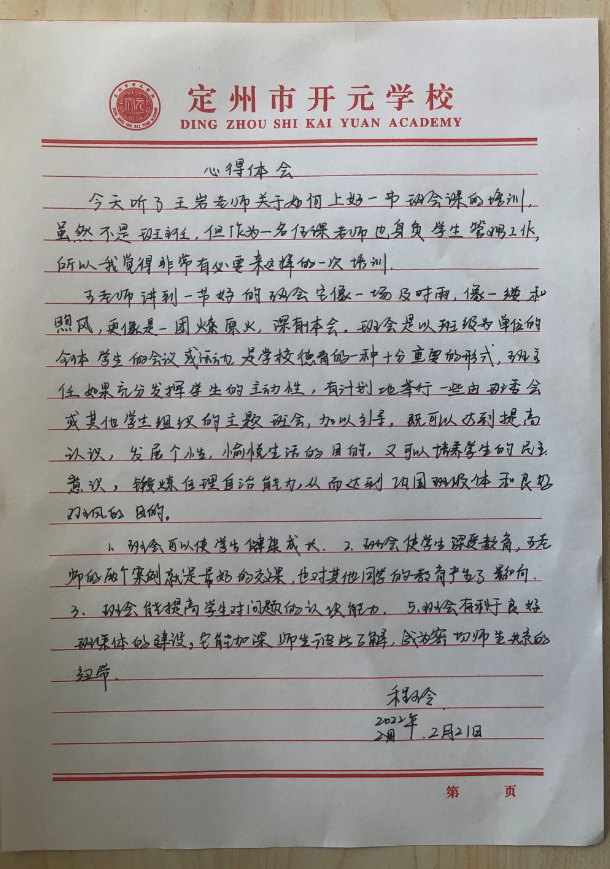 定州市开元学校
DING ZHOU SHI KAI YUAN ACADEMY
心得体会
今天听了王岩老师关于如何上好一节班会课的培训,
虽然不是班主任,但作为一名任课老师也身负学生管理工作,
所以我觉得非常有必要来这样的一次培训.
王老师讲到一节好的班会它像一场及时雨,像一缕和
煦风,更像是一团燎原火,深有体会.班会是以班级为单位的
全体学生的会议或活动,是学校德育的一种十分重要的形式,班主
任如果充分发挥学生的主动性,有计划地举行一些由班委会
或其他学生组织的主题班会,加以引导,既可以达到提高
认识,发展个性,愉悦生活的目的,又可以培养学生的民主
意识,锻炼自理自治能力,从而达到巩固班级体和良好
班风的目的。
1、班会可以使学生健康成长.2、班会使学生深受教育,王老
师的两个案例就是最好的班课,也对其他同学的教育产生了影响.
3、班会能提高学生对问题的认识能力.5.班会有利于良好
班集体的建设,它能加深师生彼此了解,成为密切师生关系的
纽带.
2022年
2月21日
第 页